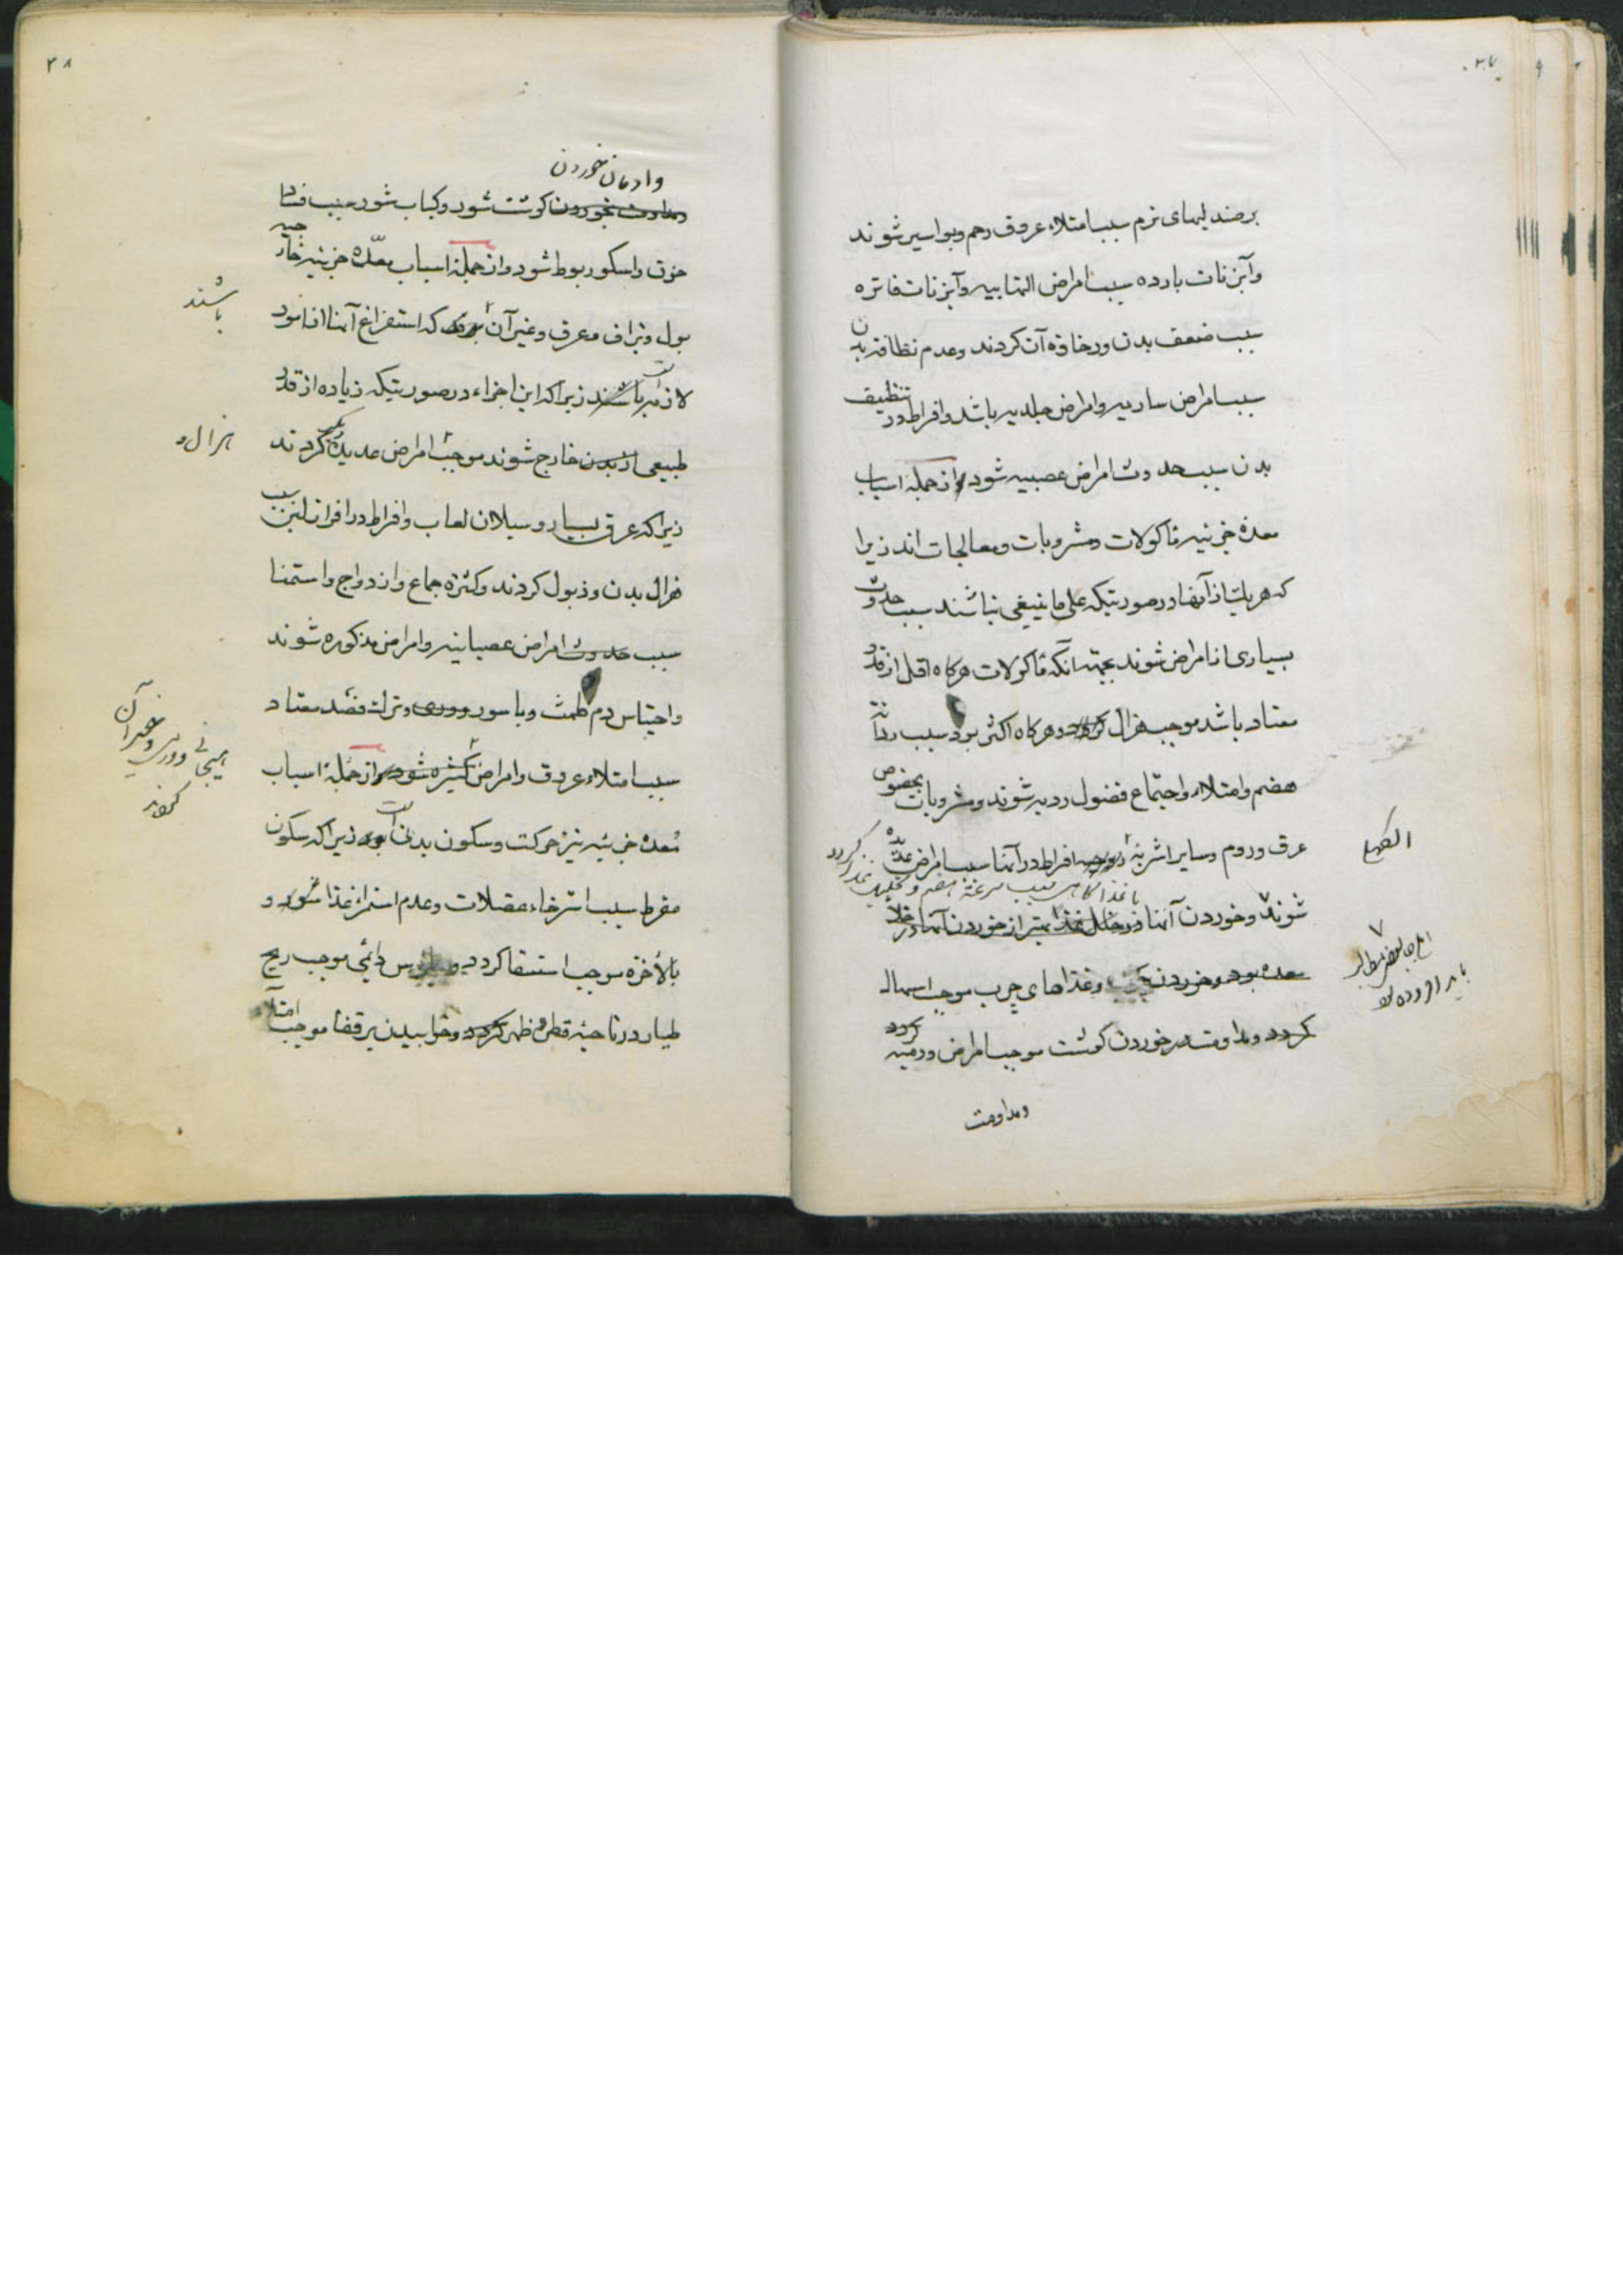 ۴۷
برصندلیهای نرم سبب امتلاء عروق رحم وبواسیر شوند
وآبزنات بارده سبب امراض التهابیه وآبزنات فاتره
سبب ضعف بدن ورخاوة آن کردند وعدم نظافة بدن
سبب امراض ساریه وامراض جلدیه باشد وافراط در تنظیف
بدن سبب حدوث امراض عصبیه شود واز جمله اسباب
معدة جزئیه ماکولات ومشروبات ومعالجات اند زیرا
که هریک از آنها در صورتیکه علی ما ینبغی نباشند سبب حدوث
بسیاری از امراض شوند بجهة آنکه ماکولات هرکاه اقل از قدر
معتاد باشد موجب هزال وهرکاه اکثر بود سبب
هضم وامتلاء واجتماع فضول ردیه شوند ومشروبات بخصوص
عرق وروم وسایر اشربه افراط در آنها سبب امراض عدیده
شوند وخوردن آنها در خلال غذا بهتر از خوردن آنها در خلاء
معده بود وخوردن وغذاهای چرب موجب اسهال
کردد ومداومت در خوردن کوشت موجب امراض ورمیه کردد
ومداومت
۴۸
وادمان خوردن
ومداومت بخوردن کوشت شور وکباب شور سبب فساد
خون واسکوربوط شود واز جمله اسباب معدّه جزئیه
بول وبزاق وعرق وغیر آن که استفراغ آنها از امور
باشند
لازمه باشند زیرا که این اجزاء در صورتیکه زیاده از قدر
طبیعی از بدن خارج شوند موجب امراض عدیده کردند
هزال و
زیرا که عرق بسیار وسیلان لعاب وافراط در افراز لبن سبب
هزال بدن وذبول کردند وکثرة جماع وازدواج واستمنا
سبب حدوث امراض عصبانیه وامراض مذکوره شوند
واحتباس دم طمث وباسور دوری وترک فصد معتاد
سبب امتلاء عروق وامراض کثیره شود واز جمله اسباب
معده جزئیه نیز حرکت وسکون بدن است زیرا که سکون
مفرط سبب استرخاء عضلات وعدم استمراء غذا شود و
بالأخره موجب استسقا کردد وجلوس دائمی موجب ریح
طیار در ناحیه قطن وظهر کردد وخوابیدن بر قفا موجب امتلاء